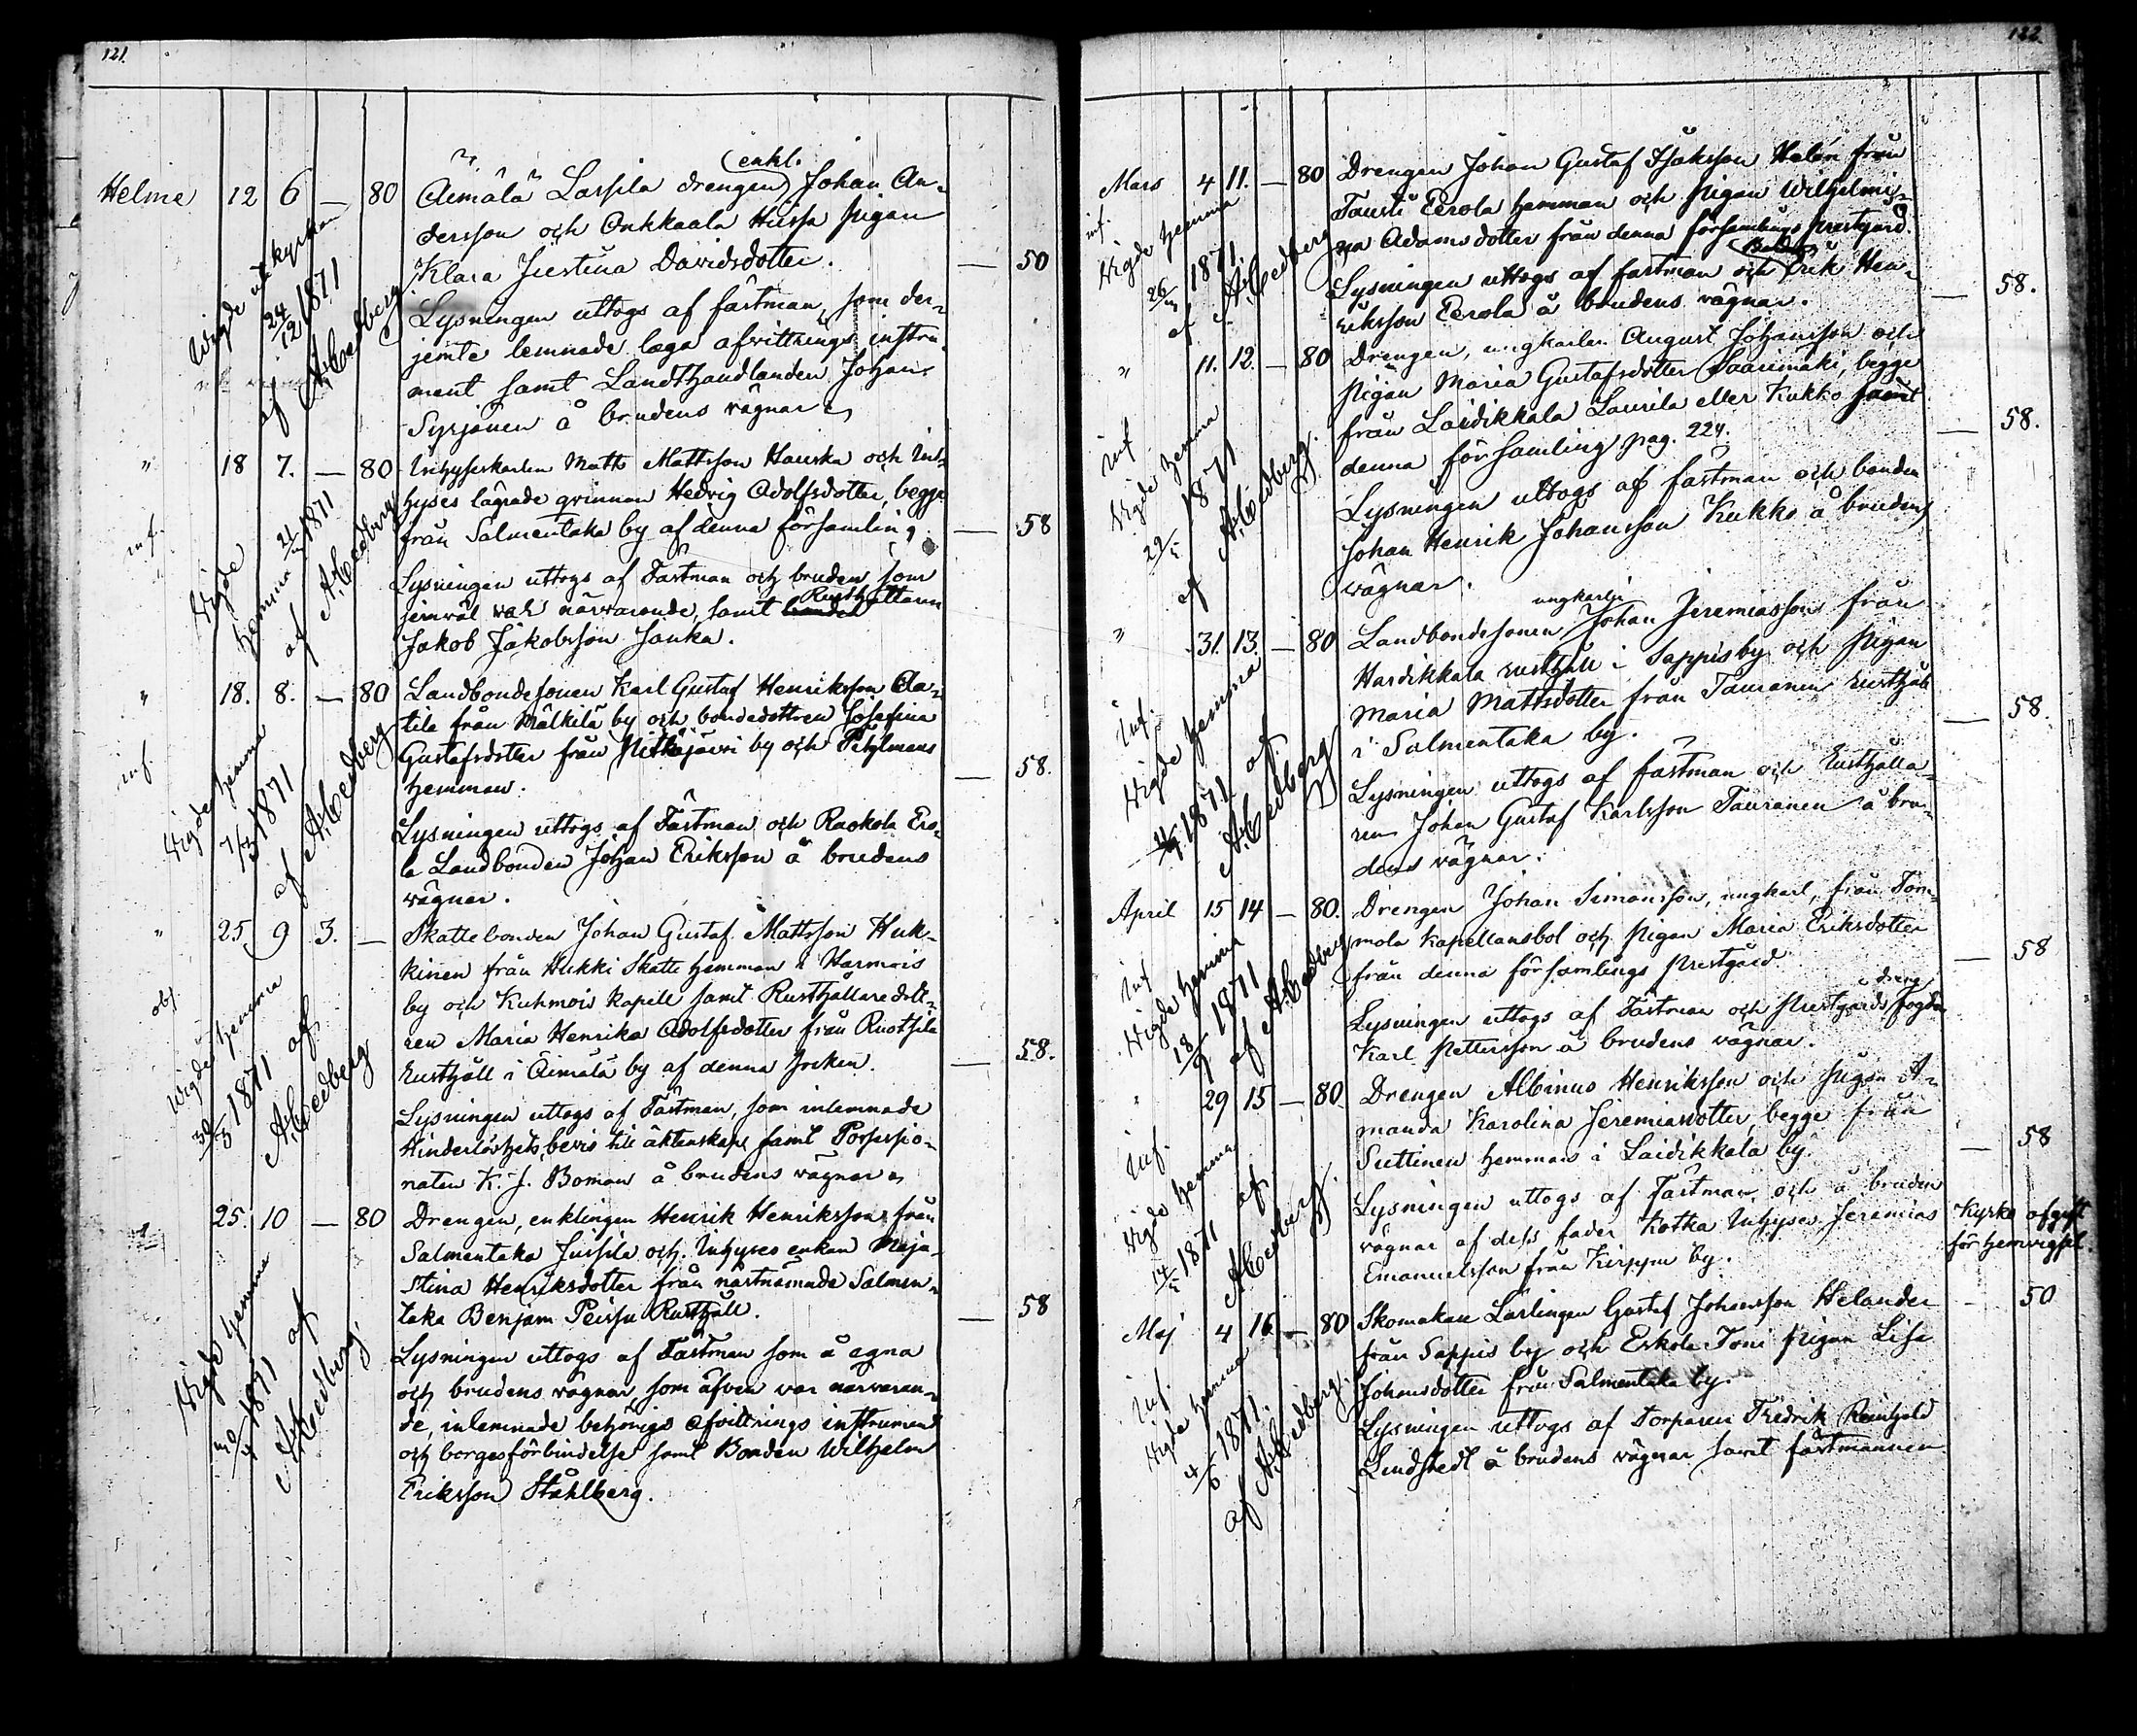 121.
Helme 12 6 — 80 Aimälä Lassila drengen (enkl. Johan An-
dersson och Onkkaala Hussa pigan
Klara Justina Davidsdotter. — 50
Lysningen uttogs af fästman, som der-
jemte lemnade laga afvittrings instru-
ment samt Landthandlanden Johan
Syrjänen å brudens vägnar
Wigde i kyrkan
24/12 1871
af A Hedberg
" 18 7. — 80 Inhyseskarlen Matts Mattsson Hauska och Inhyses
lägrade qvinnan Hedvig Adolfsdotter, begge
från Salmentaka by af denna församling. — 58
Lysningen uttogs af Fästman och bruden som
jemväl var närvarande, samt bonden Rusthållaren
Jakob Jakobsson Janka.
inf.
Wigde hemma 1871
af A Hedberg
" 18. 8. — 80 Landbondesonen Karl Gustaf Henriksson Ala-
tila från Mälkilä by och bondedottren Josefina
Gustafsdotter från Pitkäjärvi by och Pihlmans
hemman. — 58.
Lysningen uttogs af Fästman och Raokola Ero-
la Landbonden Johan Eriksson å brudens
vägnar.
inf.
Wigde hemma
7/3 1871
af A Hedberg
" 25 9 3. — Skattebonden Johan Gustaf Mattsson Huk-
kinen från Hukki Skatte hemman i Harmois
by och Kuhmois kapell samt Rusthållaredott-
ren Maria Henrika Adolfsdotter från Ruotsila
Rusthåll i Äimälä by af denna socken. — 58.
Lysningen uttogs af Fästman, som inlemnade
Hinderlöshets bevis till äktenskap, samt Possessio-
naten K. J. Boman å brudens vägnar
obf.
Wigde hemma
30/3 1871 af
A Hedberg
25. 10 — 80 Drengen, enklingen Henrik Henriksson från
Salmentaka Jussila och Inhyses enkan Maja
Stina Henriksdotter från nästnämnde Salmen-
taka Benjam Peisu Rusthåll. — 58
Lysningen uttogs af Fästman som å egna
och brudens vägnar, som äfven var närvaran-
de, inlemnade behöriga afvittrings instrument
och borgesförbindelse samt Bonden Wilhelm
Eriksson Ståhlberg.
Wigde hemma
30/4 1871 af
A Hedberg.
122.
Mars 4 11. — 80 Drengen Johan Gustaf Isaksson Helén från
Tausti Eerola hemman och pigan Wilhelmi-
na Adamsdotter från denna församlings prestgård.
Lysningen uttogs af fästman och Bonden Erik Hen- — 58.
riksson Eerola å brudens vägnar.
inf.
Wigde hemma
26/3 1871.
af A Hedberg
" 11. 12. — 80 Drengen, ungkarlen August Johansson och
pigan Maria Gustafsdotter Saarimäki, begge
från Laidikkala Laurila eller Kukko samt — 58.
denna församling pag. 224.
Lysningen uttogs af fästman och bonden
Johan Henrik Johansson Kukko å brudens
vägnar.
inf
Wigde hemma
1871
af A Hedberg.
" 31. 13. — 80 Landbondesonen ungkarlen Johan Jeremiasson från
Hardikkala rusthåll i Sappis by och pigan
Maria Mattsdotter från Tauranen rusthåll — 58.
i Salmentaka by.
Lysningen uttogs af fästman och Rusthålla-
ren Johan Gustaf Karlsson Tauranen å bru-
dens vägnar.
Inf.
Wigde hemma
1871 af
A Hedberg
April 15 14 — 80. Drengen Johan Simonsson, ungkarl, från Tom-
mola kapellansbol och pigan Maria Eriksdotter
från denna församlings prestgård. — 58
Lysningen uttogs af Fästman och prestgårds drengfogden
Karl Pettersson å brudens vägnar.
Inf
Wigde hemma
18/5 1871
af A Hedberg
" 29 15 — 80. Drengen Albinus Henriksson och pigan A-
manda Karolina Jeremiasdotter, begge från
Suttinen hemman i Laidikkala by. — 58
Lysningen uttogs af Fästman, och å bruden
vägnar af dess fader Kotka Inhyses Jeremias Kyrko afgift
Emanuelsson från Kirppu by. för hemvigsel.
Inf.
Wigde hemma
14/5 1871 af
A Hedberg.
Maj 4 16 — 80 Skomakare Lärlingen Gustaf Johansson Helander — 50
från Sappis by och Erkola Toni pigan Lisa
Johansdotter från Salmentaka by.
Lysningen uttogs af Torparen Fredrik Reinhold
Lindstedt å brudens vägnar samt fästmannen
Inf.
Wigde hemma
4/6 1871.
af A Hedberg.